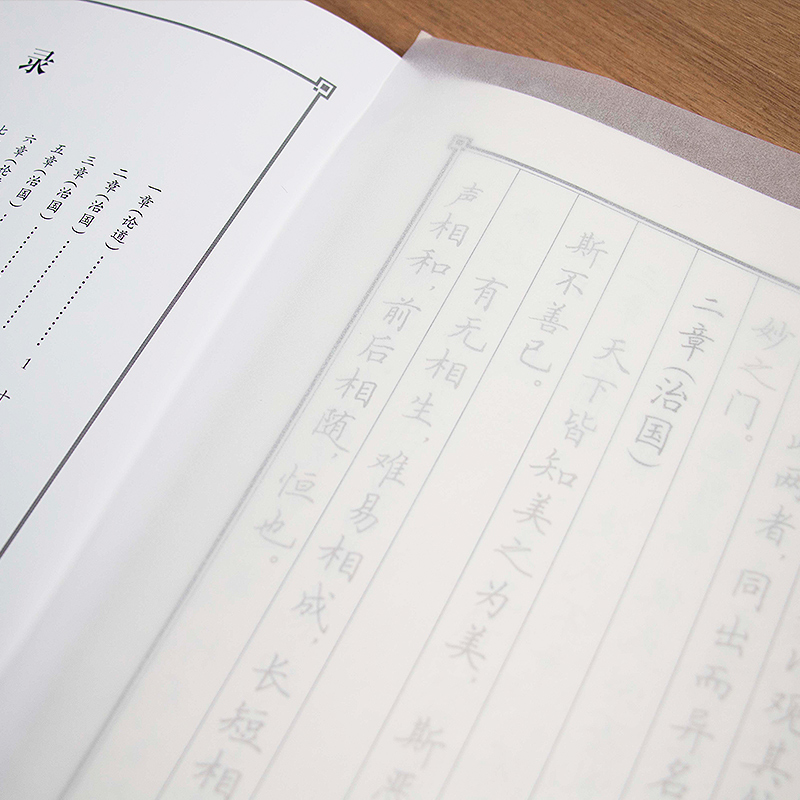 录
一章(论道)
二章(治国)……1
三章(治国)……
五章(治国)……
六章(论
七
十
观其
两者，同出而异名
妙之门。
二章(治国)
天下皆知美之为美，斯恶
斯不善已。
有无相生，难易相成，长短相
声相和，前后相随，恒也。